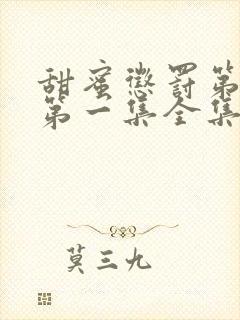 甜蜜懲罰第
第一集全集
莫三九